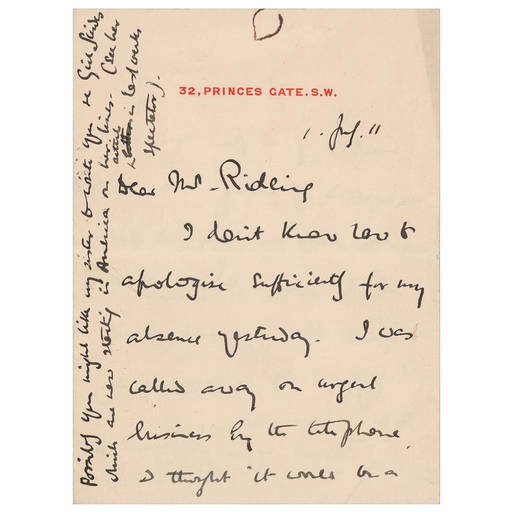 32, PRINCES GATE. S.W.
1. July. 11
Dear Mr. Ridling
I don't know how to
apologise sufficiently for my
absence yesterday. I was
called away on urgent
business by the telephone.
I thought it would be a
Possibly you might like my sister to write you re Girl Guides
which are now starting in America on her lines. (See her
article
in last weeks
Spectator).